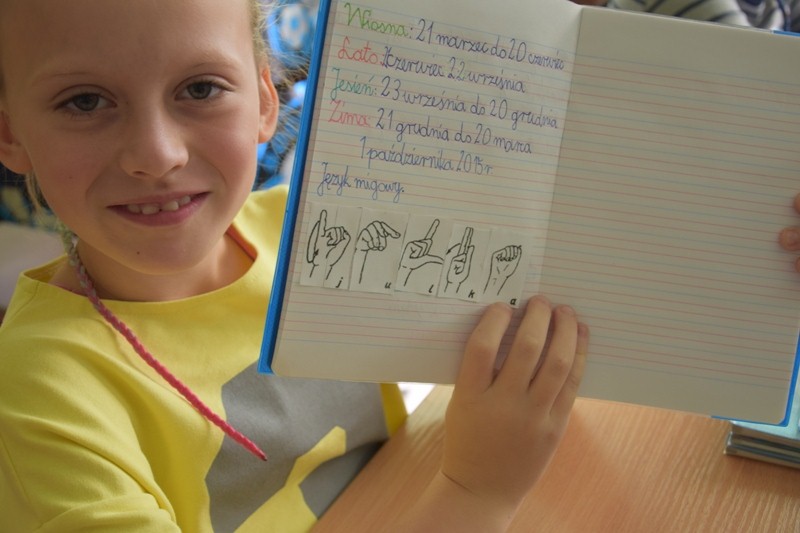 Wiosna: 21 marzec do 20 czerwiec
Lato: 21 czerwiec 22 września
Jesień: 23 września do 20 grudnia
Zima: 21 grudnia do 20 marca
1 października 2015r
Język migowy.
j u l k a